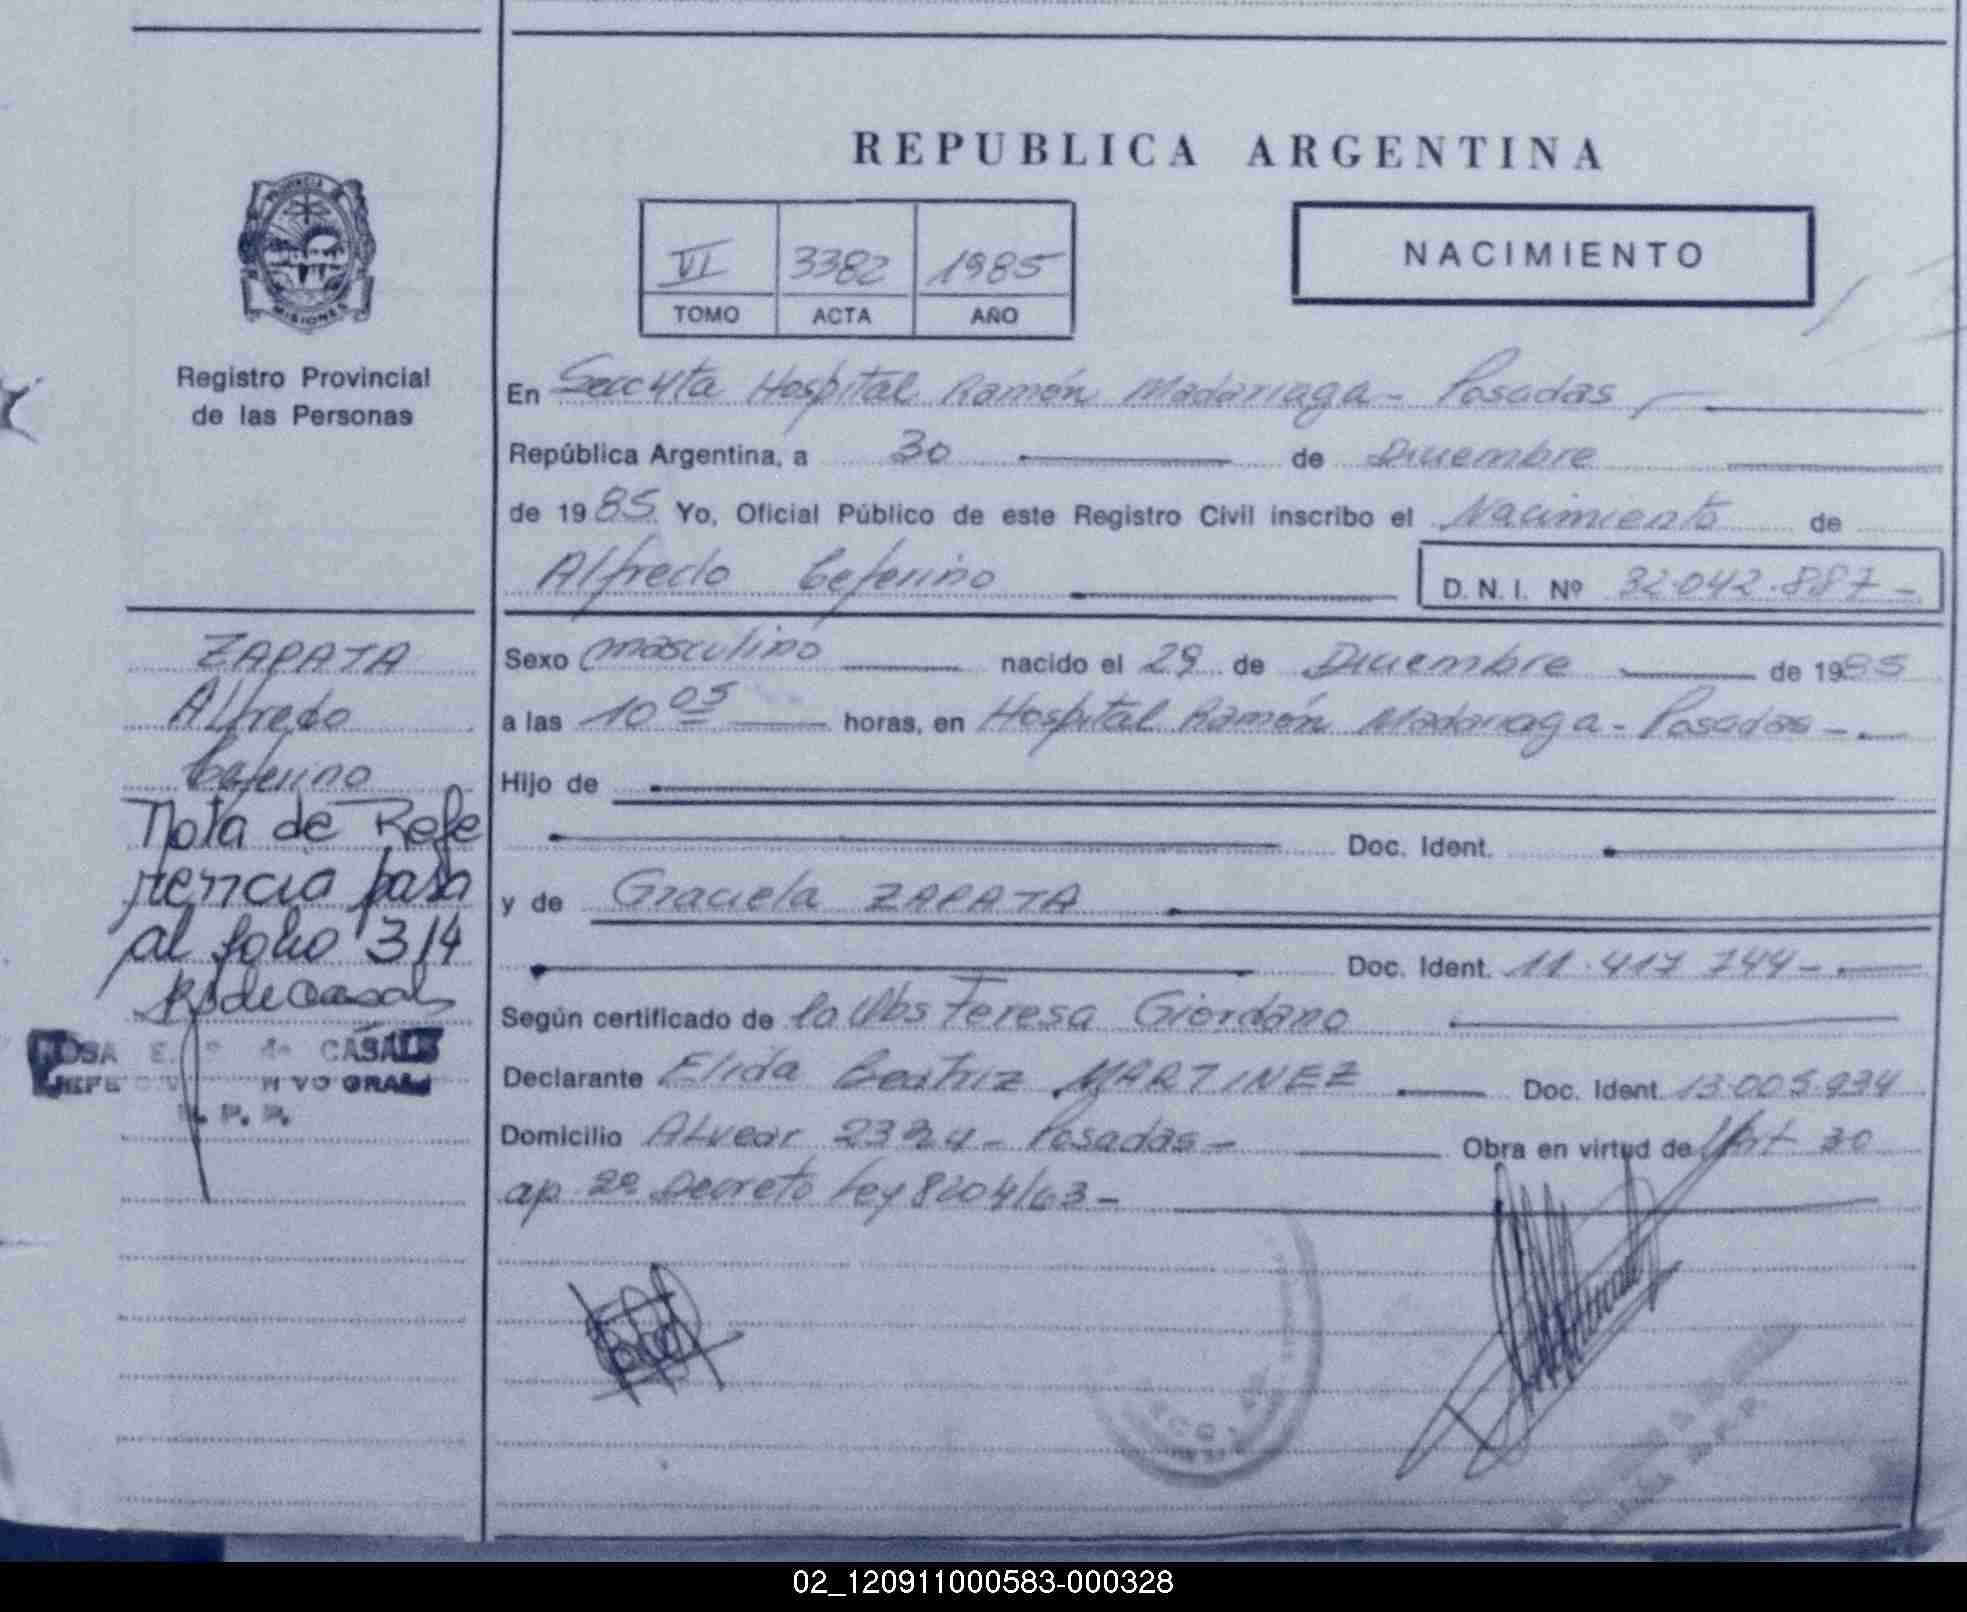 REPUBLICA ARGENTINA
PROVINCIA DE
MISIONES
Registro Provincial
de las Personas
NACIMIENTO
VI 3382 1985
TOMO ACTA AÑO
En Secc 4ta Hospital Ramón Madariaga - Posadas
República Argentina, a 30 de Diciembre
de 1985 Yo, Oficial Público de este Registro Civil inscribo el Nacimiento de
Alfredo Ceferino D. N. I. Nº 32.042.887 -
Sexo masculino nacido el 29 de Diciembre de 1985
a las 10 05 horas, en Hospital Ramón Madariaga - Posadas -
Hijo de
Doc. Ident.
y de Graciela ZAPATA
Doc. Ident. 11.417.744 -
Según certificado de la Obs Teresa Giordano
Declarante Elida Beatriz MARTINEZ Doc. Ident. 13.005.934
Domicilio Alvear - Posadas - Obra en virtud de Art 30
ap 2º Decreto Ley 8204/63 -
ZAPATA
Alfredo
Ceferino
Nota de Refe
rencia pasa
al folio 314
CASALS
02_120911000583-000328